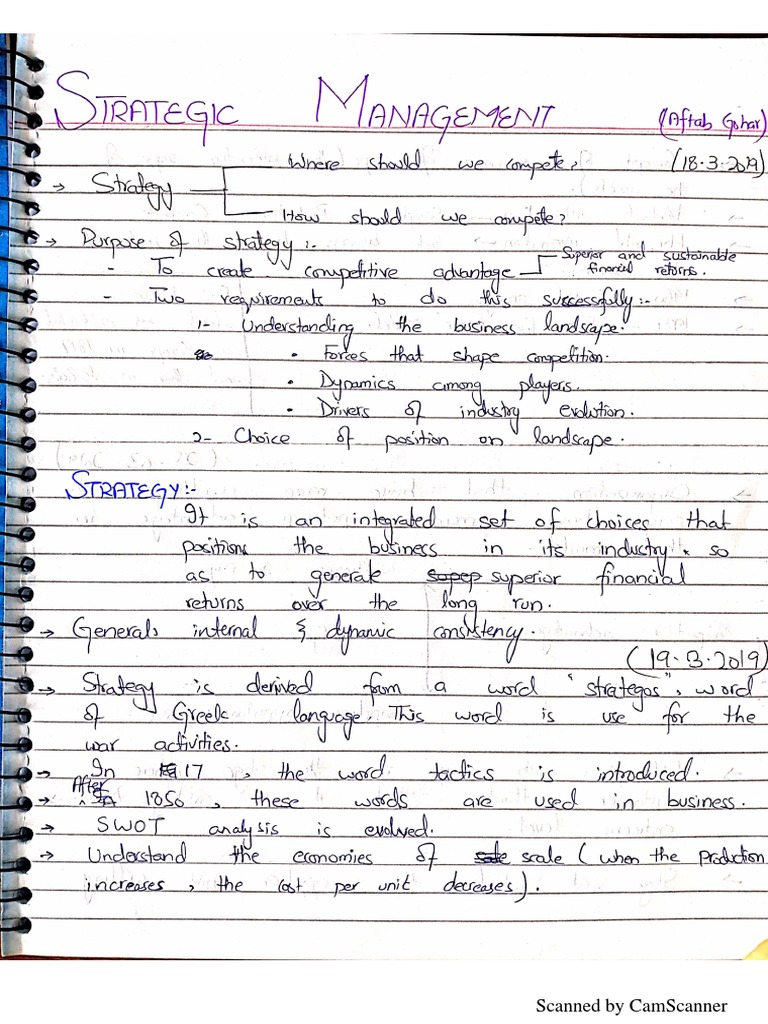 STRATEGIC MANAGEMENT (Aftab Gohar)
Where should we compete? (18.3.2019)
→ Strategy
How should we compete?
→ Purpose of strategy:-
- To create competitive advantage Superior and sustainable financial returns.
- Two requirements to do this successfully:-
1- Understanding the business landscape.
• Forces that shape competition.
• Dynamics among players.
• Drivers of industry evolution.
2- Choice of position on landscape.
STRATEGY:-
It is an integrated set of choices that
positions the business in its industry so
as to generate superior financial
returns over the long run.
→ General, internal & dynamic consistency.
(19.3.2019)
→ Strategy is derived from a word "strategos", word
of Greek language. This word is use for the
war activities.
→ In 17, the word tactics is introduced.
→ After 1850, these words are used in business.
→ SWOT analysis is evolved.
→ Understand the economies of scale (when the production
increases, the cost per unit decreases).
Scanned by CamScanner